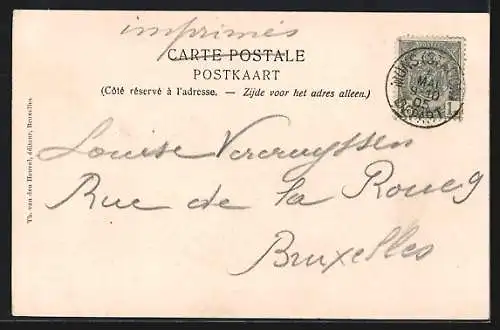 imprimés
CARTE POSTALE
POSTKAART
(Côté réservé à l'adresse. — Zijde voor het adres alleen.)
Louise Vercruyssen
Rue de la
Bruxelles
Th. van den Heuvel, éditeur, Bruxelles.